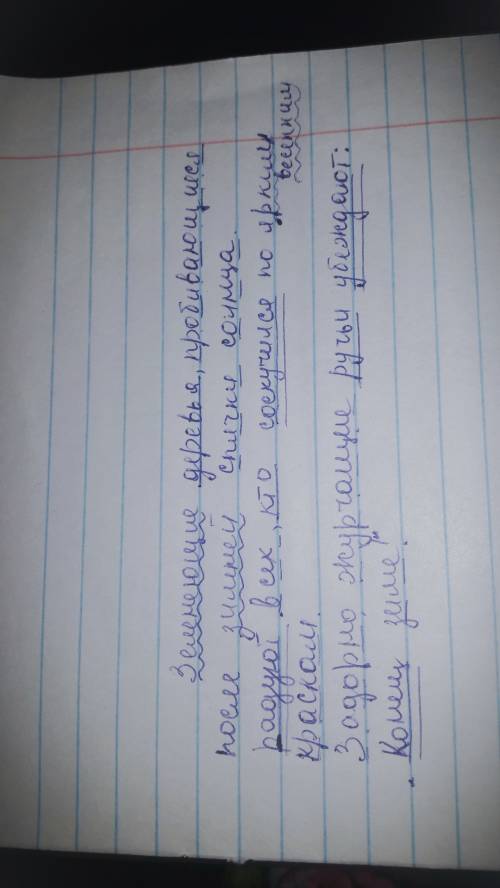 Зеленеющие деревья, пробивающиеся
после зимней спячки солнца.
радуют всех, кто соскучился по ярким
весенним
краскам.
Задорно журчащие ручьи убеждают:
"Конец зиме".